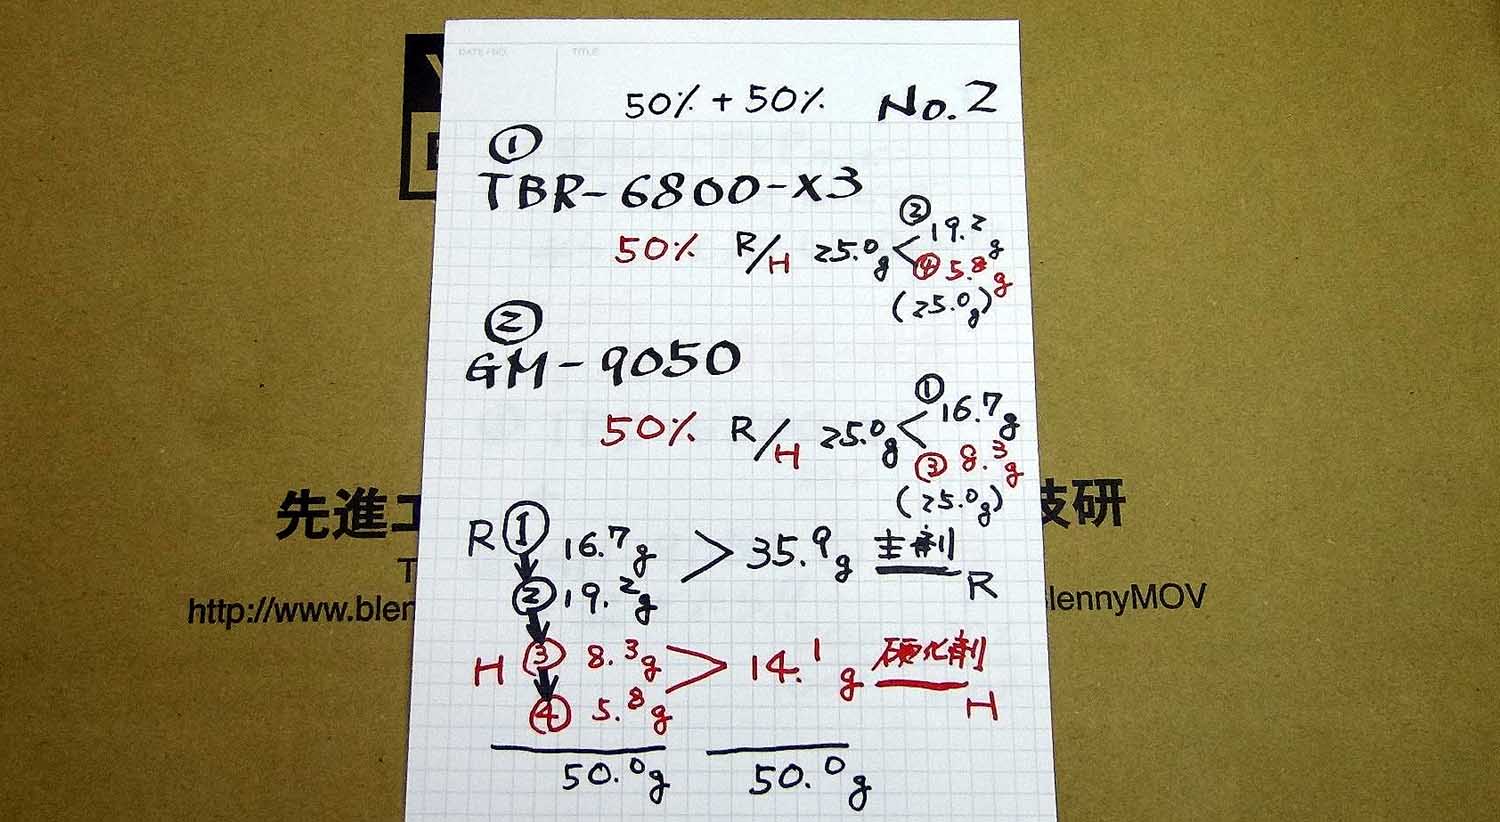 DATE / NO. TITLE
50% + 50% No.2
①
TBR-6800-X3
50% R/H 25.0g < ② 19.2g
④ 5.8g
(25.0g)
②
GM-9050
50% R/H 25.0g < ① 16.7g
③ 8.3g
(25.0g)
先進工 技研
R ① 16.7g > 35.9g 主剤 R
② 19.2g
http://www.blen lennyMOV
H ③ 8.3g > 14.1g 硬化剤 H
④ 5.8g
50.0g 50.0g